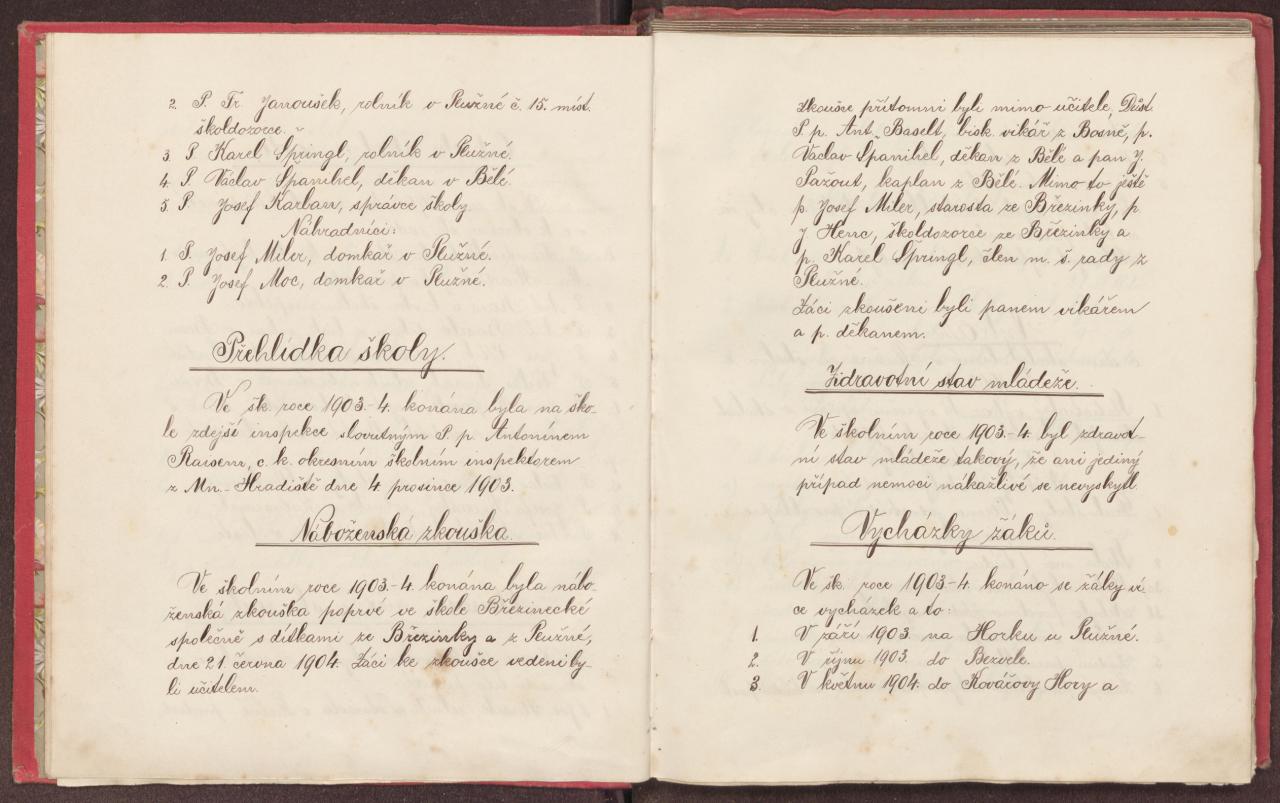 2. P. Fr. Janoušek, rolník v Plužné č. 15. míst.
školdozorce.
3. P. Karel Špringl, rolník v Plužné.
4. P. Václav Španihel, děkan v Bělé.
5. P. Josef Karban, správce školy.
Náhradníci:
1. P. Josef Miler, domkář v Plužné.
2. P. Josef Moc, domkař v Plužné.
Přehlídka školy.
Ve šk. roce 1903-4. konána byla na ško-
le zdejší inspekce slovutným P. p. Antonínem
Raisem, c. k. okresním školním inspektorem
z Mn. Hradiště dne 4. prosince 1903.
Náboženská zkouška.
Ve školním roce 1903-4. konána byla nábo-
ženská zkouška poprvé ve škole Březinecké
společně s dítkami ze Březinky a z Plužné,
dne 21. června 1904. Žáci ke zkoušce vedeni by-
li učitelem.
Zkoušce přítomni byli mimo učitele, Důst.
P. p. Ant. Baselt, bisk. vikář z Bosně, p.
Václav Španihel, děkan z Bělé a pan J.
Pažout, kaplan z Bělé. Mimo to ještě
p. Josef Miler, starosta ze Březinky, p.
J. Henc, školdozorce ze Březinky a
p. Karel Špringl, člen m. š. rady z
Plužné.
Žáci zkoušeni byli panem vikářem
a p. děkanem.
Zdravotní stav mládeže.
Ve školním roce 1903-4. byl zdravot-
ní stav mládeže takový, že ani jediný
případ nemoci nákažlivé se nevyskytl.
Vycházky žáků.
Ve šk. roce 1903-4. konáno se žáky ví-
ce vycházek a to:
1. V září 1903. na Horku u Plužné.
2. V říjnu 1903. do Bezdele.
3. V květnu 1904. do Kovářovy Hory a